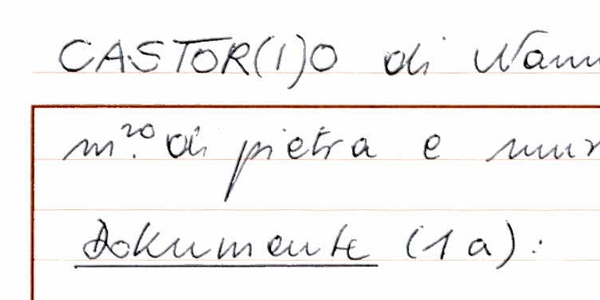 CASTOR(I)O di Nann
m.ro di pietra e mur
Dokumente (1a):